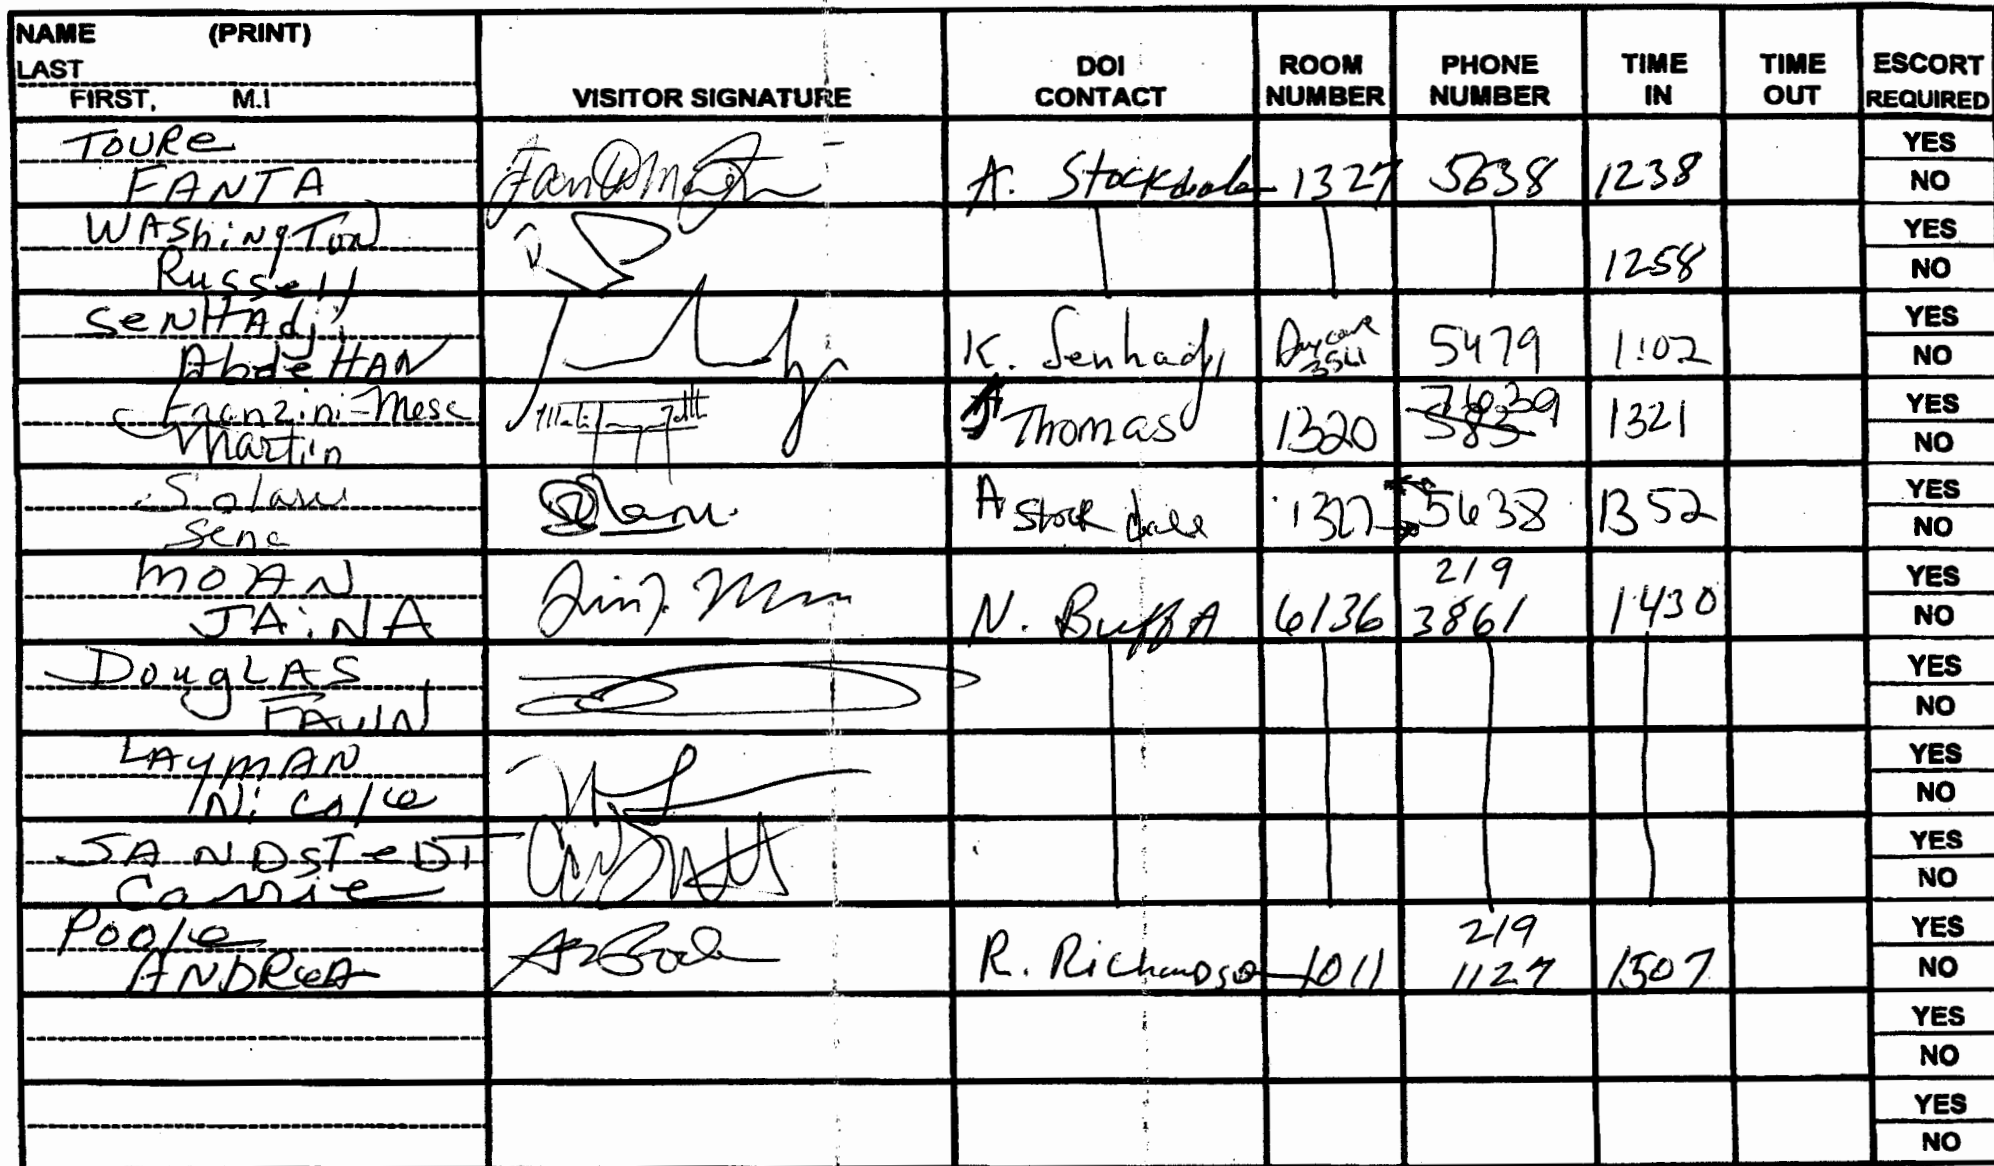 NAME (PRINT)
LAST
FIRST, M.I
VISITOR SIGNATURE
DOI CONTACT
ROOM NUMBER
PHONE NUMBER
TIME IN
TIME OUT
ESCORT REQUIRED
TOURE
FANTA
A. Stockdale 1327 5638 1238
YES
NO
WAShiNgToN
Russell
1258
YES
NO
SeNHAdji
K. Senhadji Daycare 5479 1:02
YES
NO
Franzini-Mesc
Martin
Thomas 1320 1321
YES
NO
Solaru
A Stockdale 1327 5638 1352
YES
NO
MOAN
JAiNA
N. BuffA 6136 219 3861 1430
YES
NO
DougLAS
YES
NO
LAYMAN
Nicole
YES
NO
SANDSTeDT
Carrie
YES
NO
Poole
ANDReA
R. Richardson 1011 219 1127 1507
YES
NO
YES
NO
YES
NO